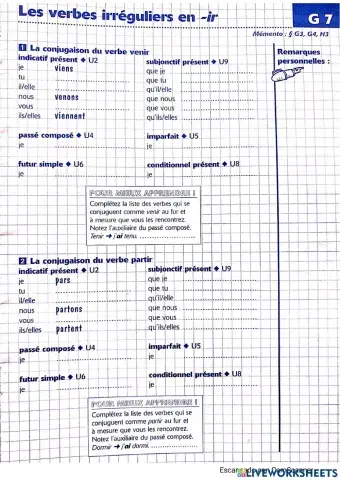 Les verbes irréguliers en -ir
G 7
Mémento : § G3, G4, H3
1 La conjugaison du verbe venir
Remarques
personnelles :
indicatif présent ◆ U2 subjonctif présent ◆ U9
je viens que je
tu que tu
il/elle qu'il/elle
nous venons que nous
vous que vous
ils/elles viennent qu'ils/elles
passé composé ◆ U4 imparfait ◆ U5
je je
futur simple ◆ U6 conditionnel présent ◆ U8
je je
POUR MIEUX APPRENDRE !
Complétez la liste des verbes qui se
conjuguent comme venir au fur et
à mesure que vous les rencontrez.
Notez l'auxiliaire du passé composé.
Tenir ➔ j'ai tenu.
2 La conjugaison du verbe partir
indicatif présent ◆ U2 subjonctif présent ◆ U9
je pars que je
tu que tu
il/elle qu'il/elle
nous partons que nous
vous que vous
ils/elles partent qu'ils/elles
passé composé ◆ U4 imparfait ◆ U5
je je
futur simple ◆ U6 conditionnel présent ◆ U8
je je
POUR MIEUX APPRENDRE !
Complétez la liste des verbes qui se
conjuguent comme partir au fur et
à mesure que vous les rencontrez.
Notez l'auxiliaire du passé composé.
Dormir ➔ j'ai dormi.
LIVEWORKSHEETS